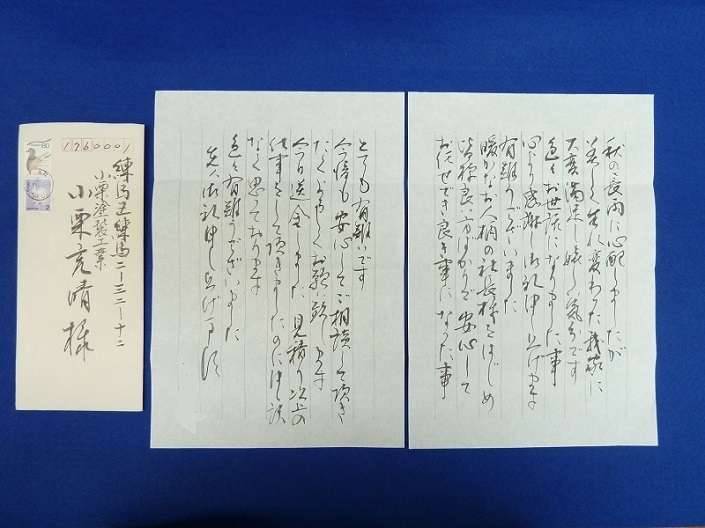 秋の長雨に心配しましたが
美しく生に変わった我家に
大変満足し嬉しい気分です
色々お世話になりました事
心より感謝し御礼申し上げます
有難うございました
暖かなお人柄の社長様をはじめ
皆様良い方ばかりで安心して
お任せでき良き事になった事
とても有難いです
今後も安心してご相談して頂き
たくよろしくお願い致します
今日送金しました 見積り以上の
仕事をして頂きましたのに申し訳
なく思っております
色々有難うございました
先は御礼申し上げます
1760001
練馬区練馬二-三二-十二
小栗塗装工業
小栗亮晴様
80